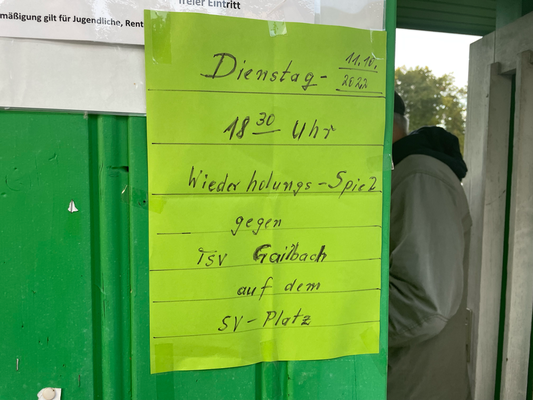 freier Eintritt
mäßigung gilt für Jugendliche, Rent
Dienstag - 11.10.
2022
18 30 Uhr
Wiederholungs-Spiel
gegen
TSV Gailbach
auf dem
SV-Platz